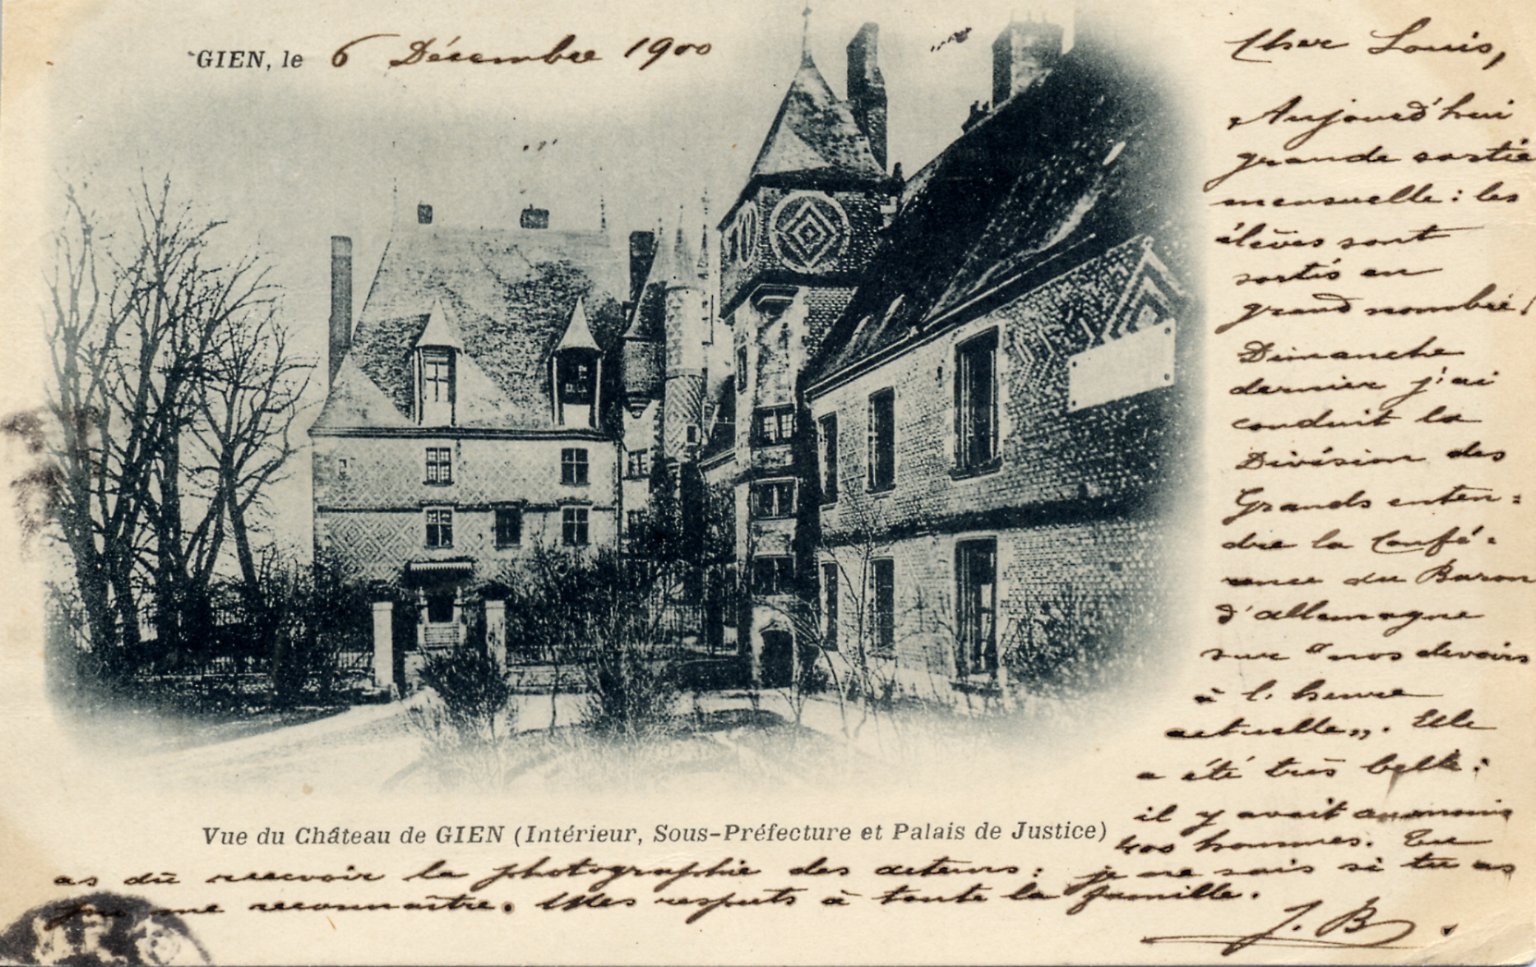 GIEN, le 6 Décembre 1900
Cher Louis,
Aujourd'hui
grande sortie
mensuelle : les
élèves sont
sortis en
grand nombre !
Dimanche
dernier j'ai
conduit la
Division des
Grands enten=
dre la Confé=
rence du Baron
d'allemagne
sur "nos devoirs
à l'heure
actuelle". Elle
a été très belle :
il y avait au moins
400 hommes. Tu
Vue du Château de GIEN (Intérieur, Sous-Préfecture et Palais de Justice)
as dû recevoir la photographie des acteurs : je ne sais si tu as
pu me reconnaître. Mes respects à toute la famille.
J. B.